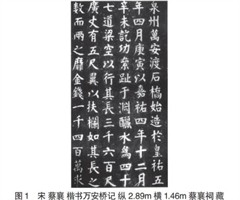 泉州萬安渡石橋始造於皇祐五
年四月庚寅以嘉祐四年十二月
辛未訖功絫趾于淵釃水為四十
七道梁空以行其長三千六百尺
廣丈有五尺翼以扶欄如其長之
數而兩之靡金錢一千四百萬求
图1 宋 蔡襄 楷书万安桥记 纵 2.89m 横 1.46m 蔡襄祠 藏